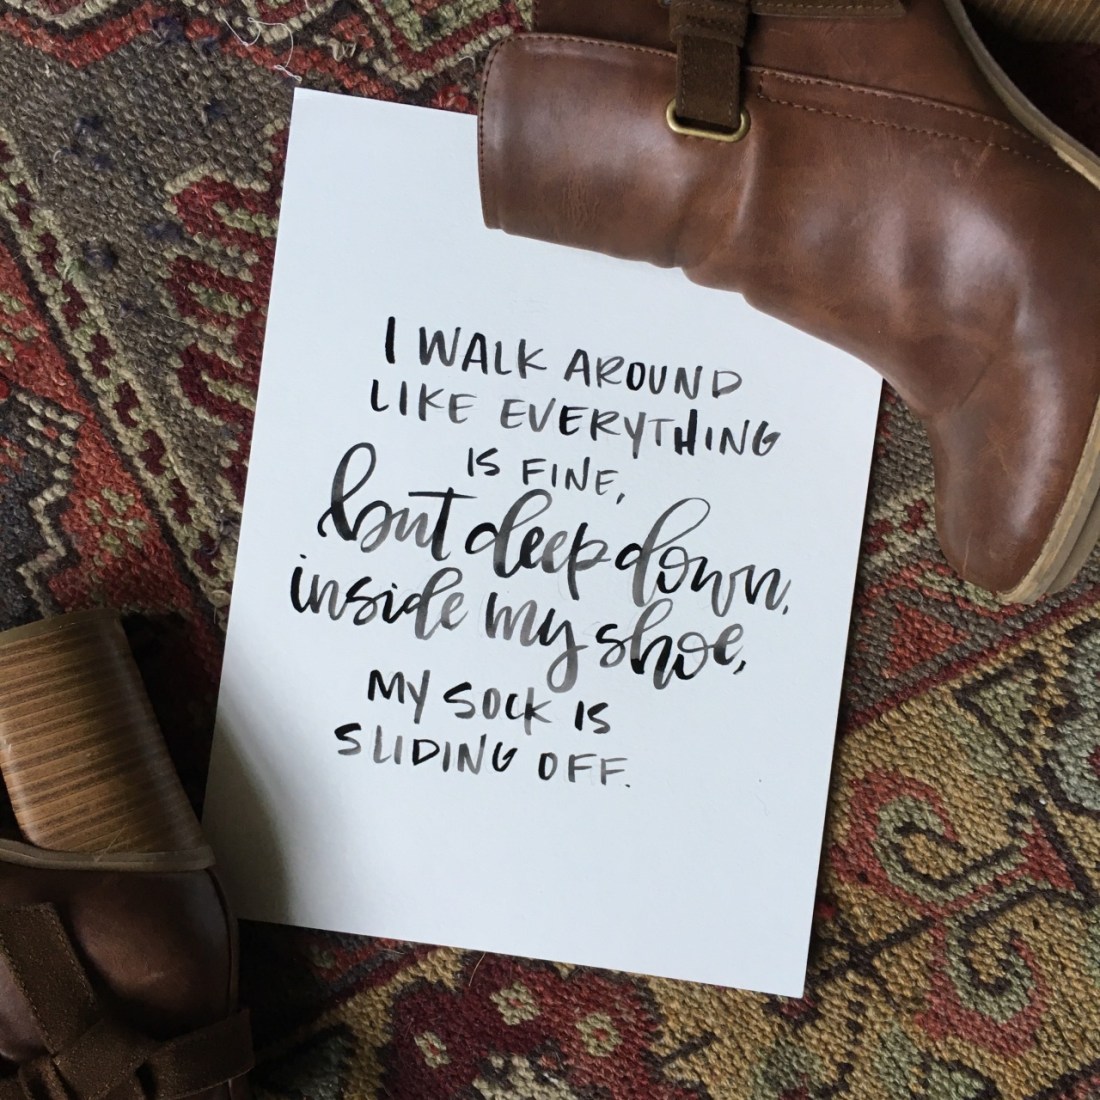 I WALK AROUND
LIKE EVERYTHING
IS FINE,
but deep down,
inside my shoe,
MY SOCK IS
SLIDING OFF.